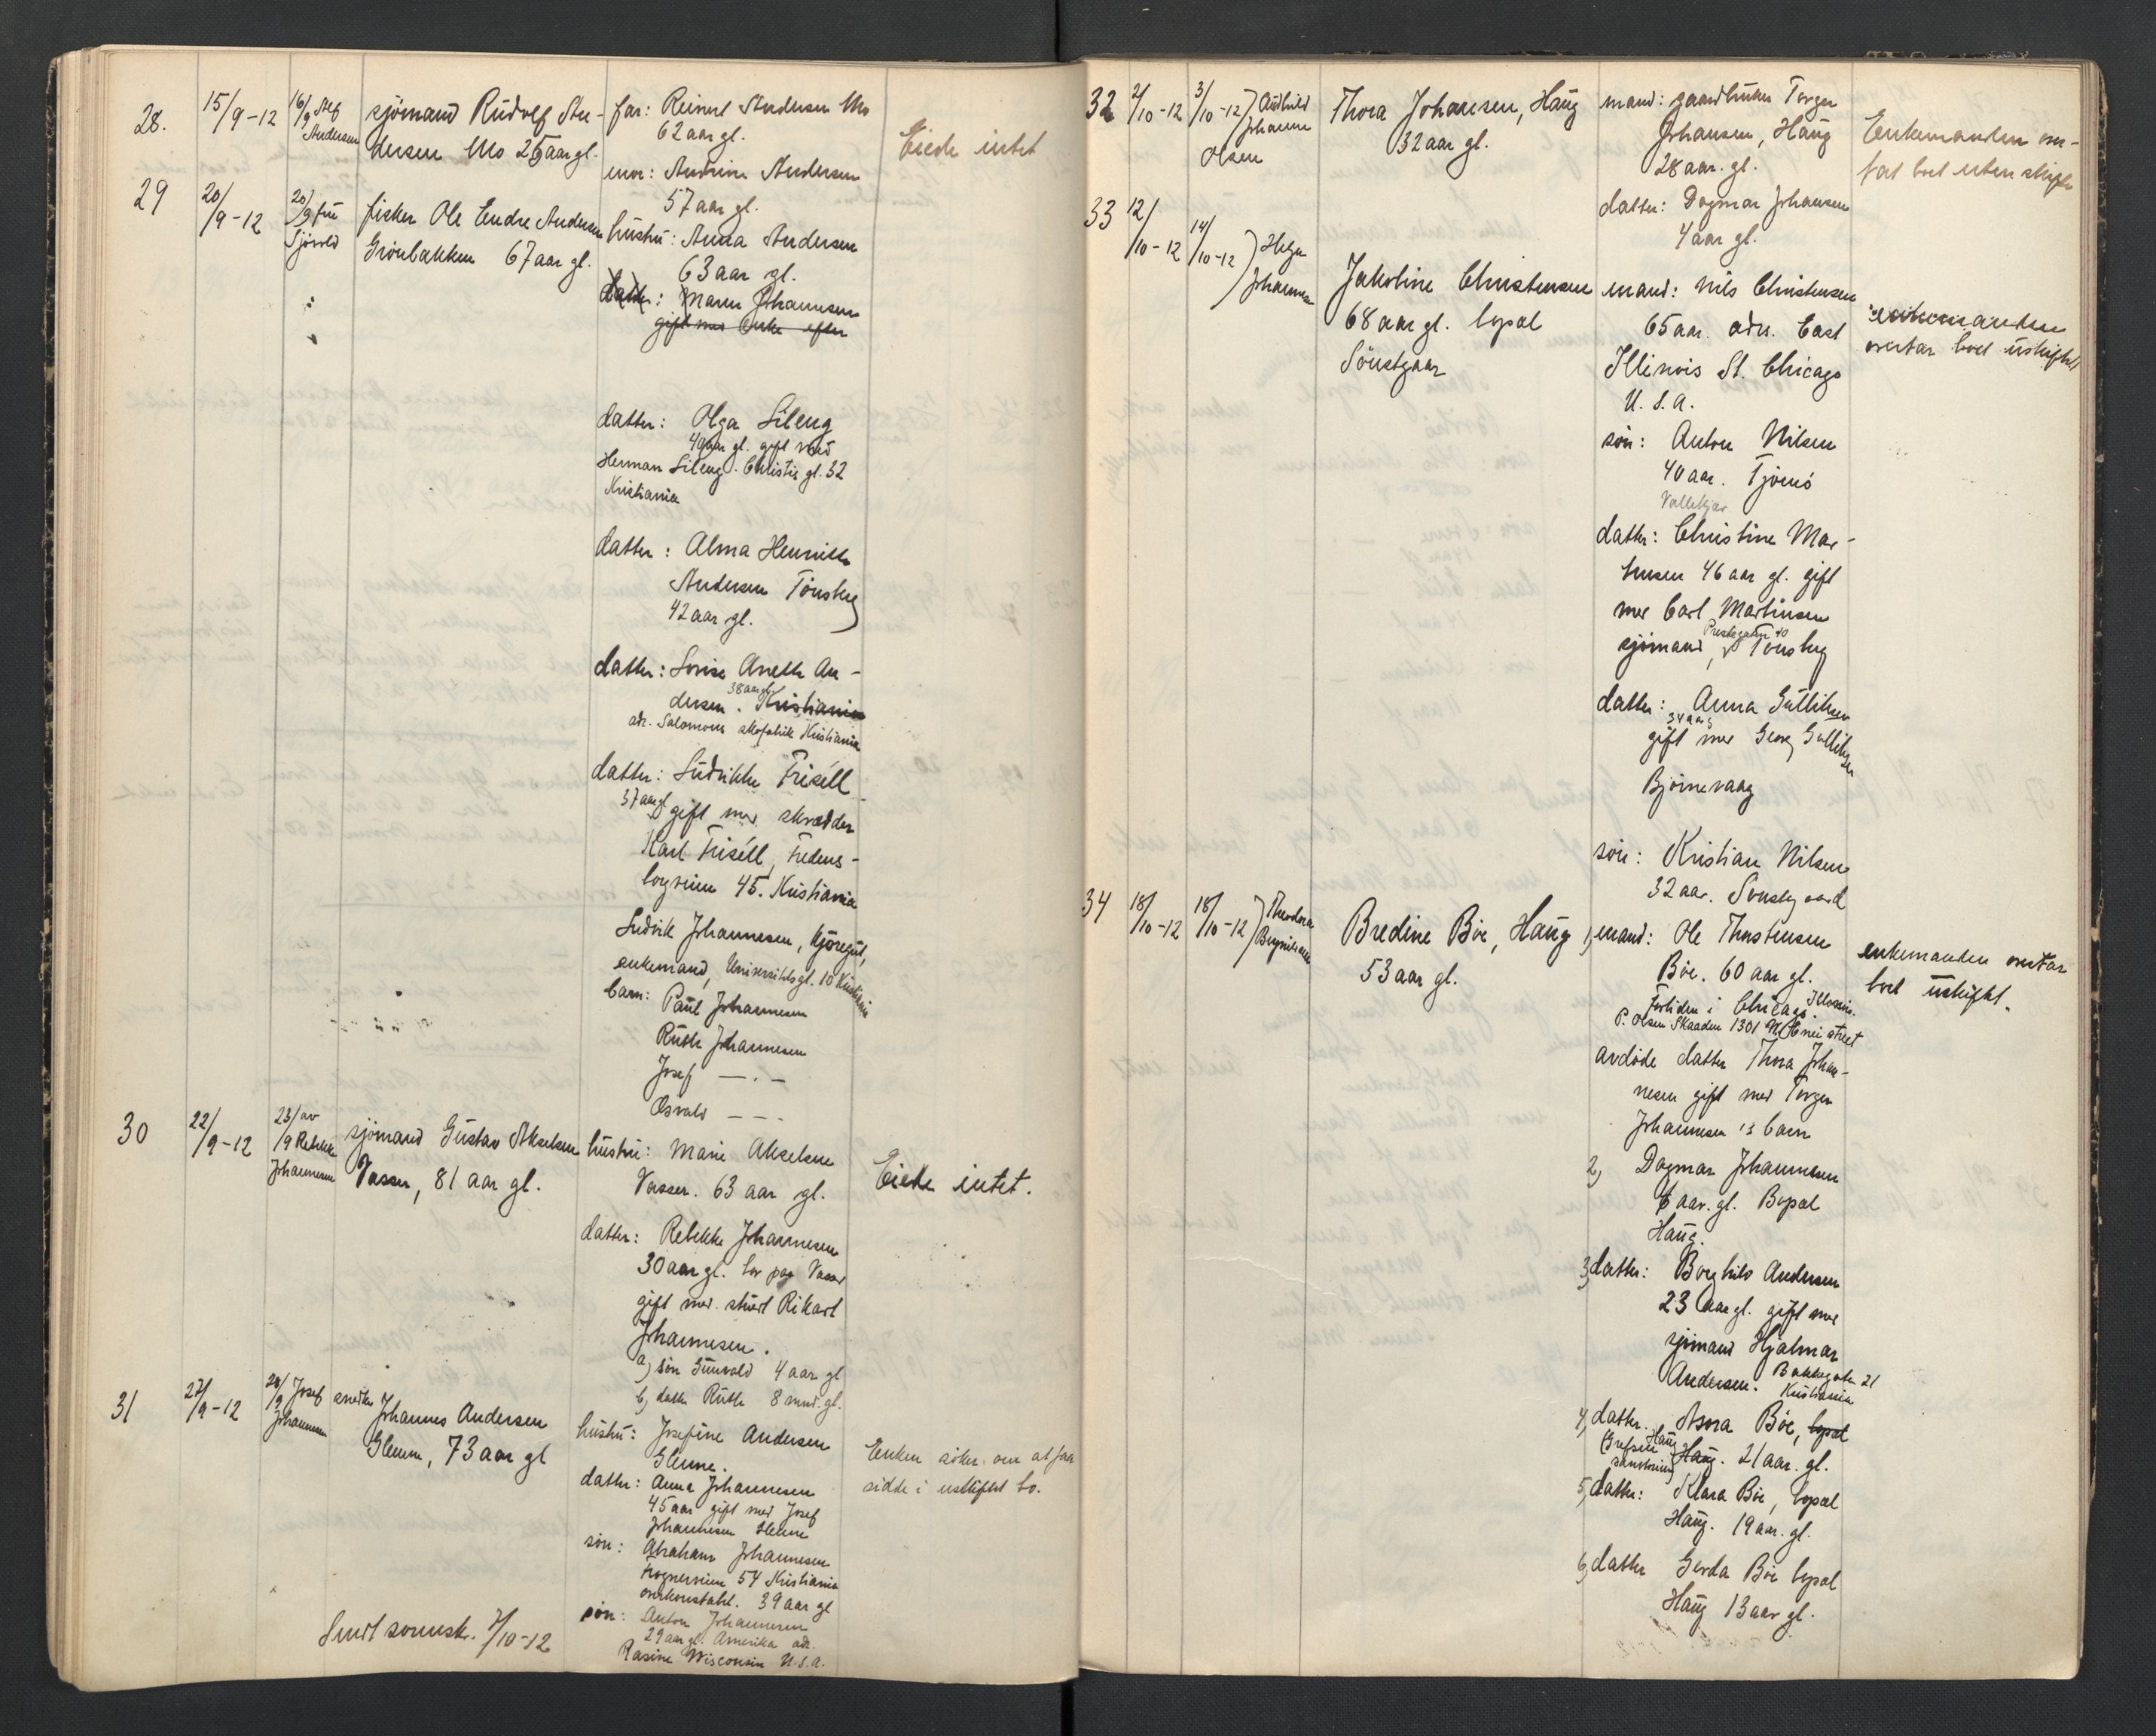 28.
15/9-12
16/9 Alf
Andersen
sjömand Rudolf An-
dersen Mo 25 aar gl.
far: Reinert Andersen Mo
62 aar gl.
mor: Andrine Andersen
57 aar gl.
Eiede intet
29
20/9-12
20/9 fru
Sjövold
fisker Ole Endre Andersen
Grönbakken 67 aar gl.
hustru: Anna Andersen
63 aar gl.
datter: Maren Johannesen
gift med Enke efter
datter: Olga Sileng
gift med
Herman Sileng. Christies gt. 32
Kristiania
datter: Alma Henriette
Andersen Tönsberg
42 aar gl.
datter: Lovise Anette An-
38 aar gl.
dersen. Kristiania
adr. Salomons skofabrik Kristiania
datter: Ludvikke Frisell
37 aar gl. gift med skrædder
Karl Frisell, Fredens-
borgveien 45. Kristiania
Ludvik Johannesen, Kjöregut,
enkemand, Universitetsgt. 10 Kristiania
barn: Paul Johannesen
Ruth Johannesen
Josef —.—
Osvald — —.
30
22/9-12
23/9 av
Rebekke
Johannesen
sjömand Gustav Akselsen
Vasser, 81 aar gl.
hustru: Marie Akselsen
Vasser. 63 aar gl.
datter: Rebekke Johannesen
30 aar gl. bor paa Vasser
gift med stuert Rikart
Johannesen.
a) sön Gunvald 4 aar gl
b) datter Ruth 8 mnd. gl.
Eiede intet.
31
27/9-12
28/9 Josef
Johannesen
snedker Johannes Andersen
Glenne, 73 aar gl
hustru: Josefine Andersen
Glenne.
datter: Anna Johannesen
45 aar gift med Josef
Johannesen Glenne
sön: Abraham Johannesen
Frognerveien 54 Kristiania
overkonstabel. 39 aar gl
sön: Anton Johannesen
29 aar gl. Amerika adr.
Rasine Wisconsin U.S.A.
Enken söker om at faa
sidde i uskiftet bo.
Sendt sorensk. 7/10-12
32
2/10-12
3/10-12 Gudhild
Johanne
Olsen
Thora Johansen, Haug
32 aar gl.
mand: gaardbruker Torger
Johansen, Haug
28 aar. gl.
datter: Dagmar Johansen
4 aar gl.
Enkemanden over-
tat boet uten skifte
33
12/10-12
14/10-12
Helga
Johannesen
Jakobine Christensen
68 aar gl. bopæl
Sönstegaar
mand: Nils Christensen
65 aar. adr. East
Illinois St. Chicago
U.S.A.
sön: Anton Nilsen
40 aar. Tjömö
Vallekjær
datter: Christine Mar-
tinsen 46 aar gl. gift
med Carl Martinsen
Prestegaten 40
sjömand, Tönsberg
datter: Anna Gulliksen
34 aar
gift med Georg Gulliksen
Björnevaag
sön: Kristian Nilsen
32 aar. Sönstegaard
enkemanden
overtar boet uskiftet
34
18/10-12
18/10-12
Theodora
Bredine Böe, Haug
53 aar gl.
1, mand: Ole Thorstensen
Böe. 60 aar gl.
Fortiden i Chicago. Illonois.
P. Olsen Skaaden 1301 street
avdöde datter Thora Johan-
nesen gift med Torger
Johannesen 's barn
2, Dagmar Johannesen
4 aar. gl. Bopæl
Haug.
3, datter: Borghild Andersen
23 aar gl. gift med
sjömand Hjalmar
Andersen. Bakkegaten 21
Kristiania
4, datter. Asora Böe, bopæl
(Grefsen Haug
sanatorium) Haug. 21 aar. gl.
5, datter: Klara Böe, bopæl
Haug. 19 aar. gl.
6, datter Gerda Böe bopæl
Haug 13 aar gl.
enkemanden overtar
boet uskiftet.